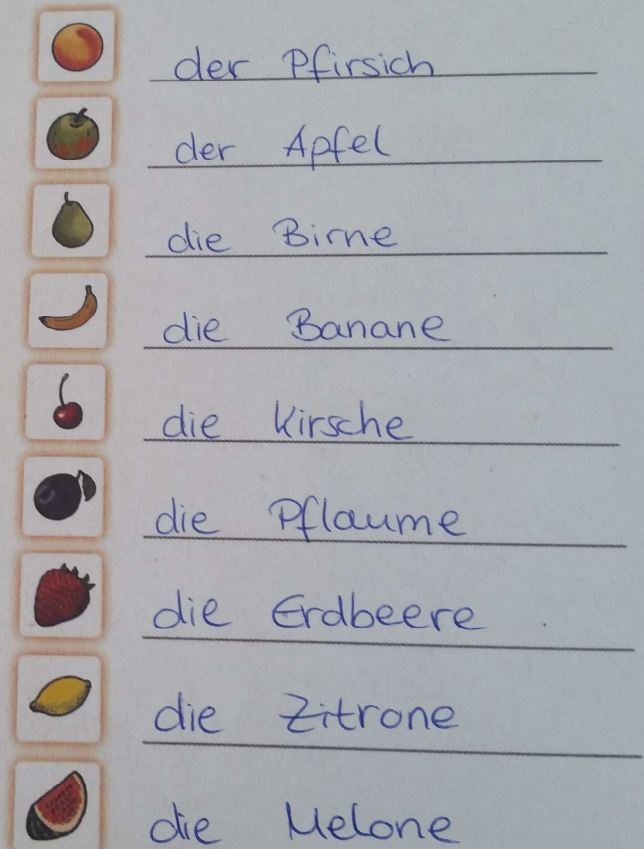 der Pfirsich
der Apfel
die Birne
die Banane
die Kirsche
die Pflaume
die Erdbeere
die Zitrone
die Melone